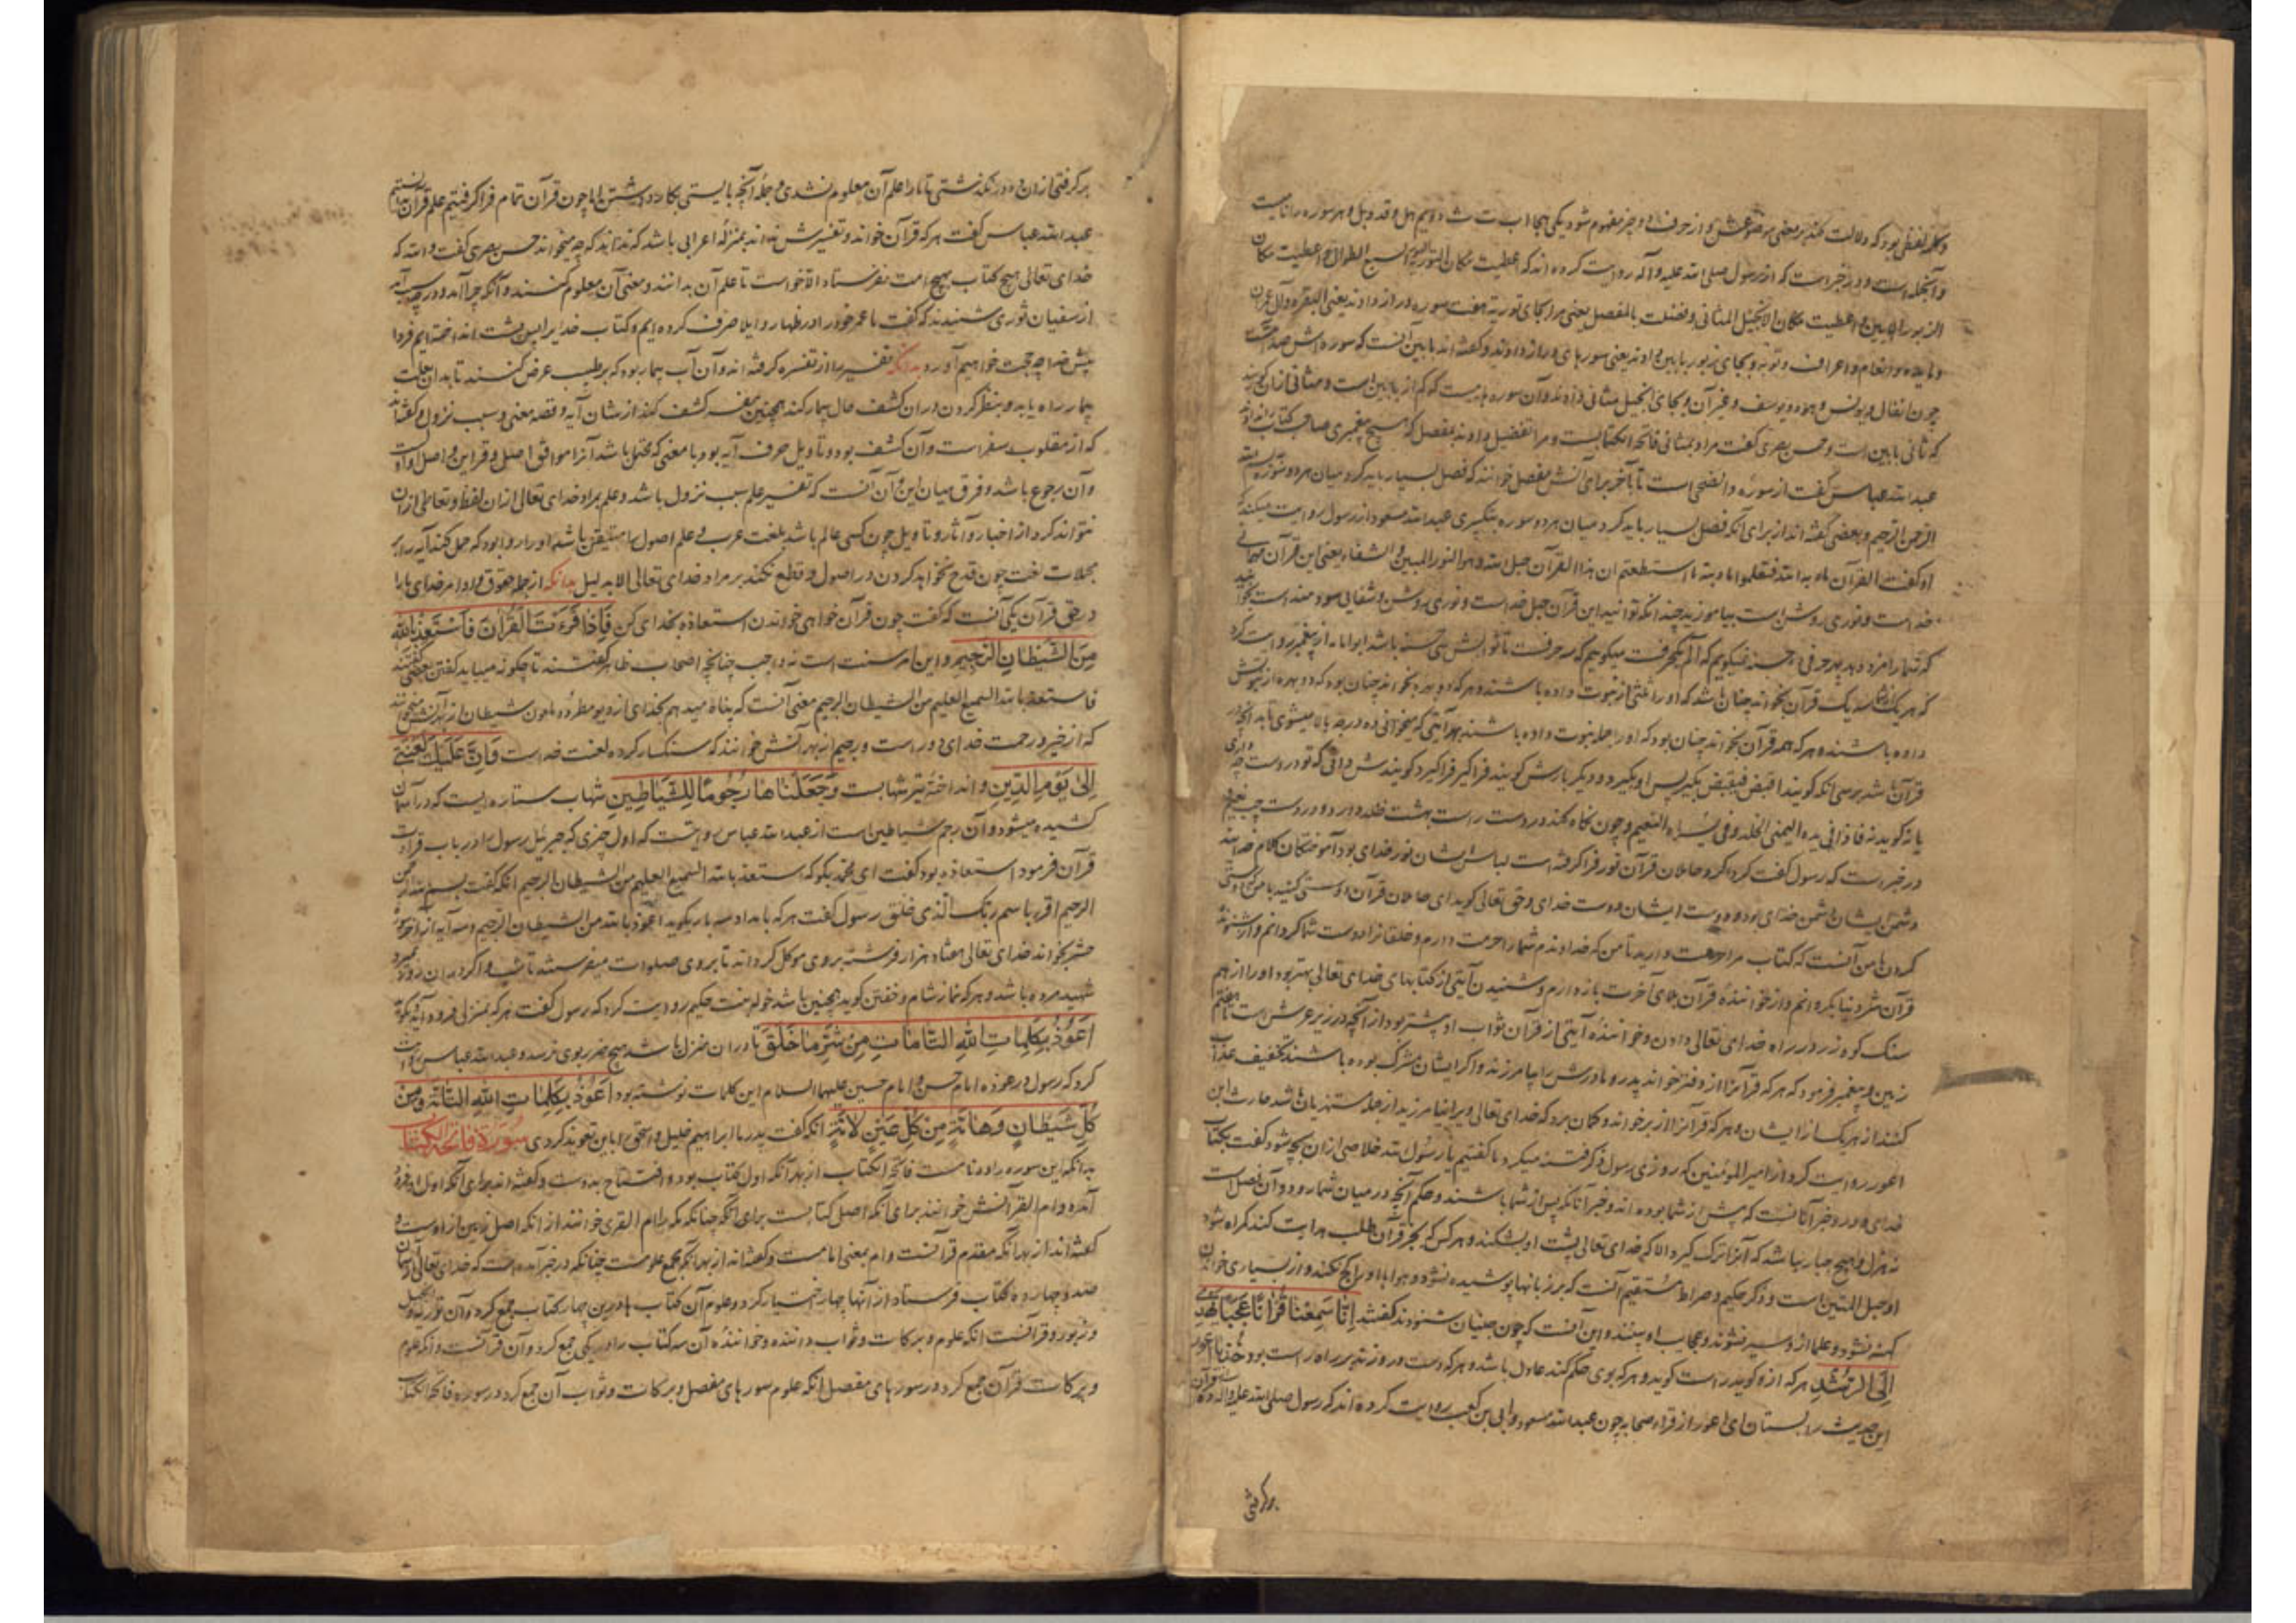 و کلمه لفظی بود که دلالت کند بر معنی
و آنجمله است و در خبر است که از رسول صلی الله علیه و آله روایت کرده‌اند که اعطیت مکان التوریة السبع الطوال و اعطیت مکان
الزبور المایین و اعطیت مکان الانجیل المثانی و فضلت بالمفصل یعنی مرا بجای توریة هفت سوره دراز دادند یعنی البقره و آل عمران
و مایده و انعام و اعراف و توبه و بجای زبور مایین دادند یعنی سورهای دراز دادند و گفته‌اند مایین آنست که سوره‌اش صد آیتست
چون انفال و یونس و هود و یوسف و غیر آن و بجای انجیل مثانی دادند و آن سوره‌هاییست که کم از مایین است و مثانی از آن گویند
که ثانی مایین است و حسن بصری گفت مراد بمثانی فاتحة الکتابست و مرا تفضیل دادند بمفصل که هیچ پیغمبری صاحب کتاب را ندادند
عبدالله عباس گفت از سوره والضحی است تا بآخر برای آنش مفصل خوانند که فصل بسیار باید کرد میان هر دو سوره بسم الله
الرحمن الرحیم و بعضی گفته‌اند از برای آنکه فصل بسیار باید کرد میان هر دو سوره بتکبیری عبدالله مسعود از رسول روایت میکند که
او گفت القرآن مادبة الله فتعلموا مادبته ما استطعتم ان هذا القرآن حبل الله و هو النور المبین و الشفاء یعنی این قرآن مهمانی
خداست و نوری روشن است بیاموزید چندانکه توانید این قرآن حبل خداست و نوری روشن و شفایی سودمند است بخوانید
که شما را مزد دهد بهر حرفی ده حسنه نمیگویم که الم یکحرفست میگویم که سه حرفست تا ثوابش سی حسنه باشد ابوامامه از پیغمبر روایت کرد
که هر یک سه یک قرآن بخواند چنان باشد که او را ثلثی از نبوت داده باشند و هر که دو بهره بخواند چنان بود که دو بهره از نبوتش
داده باشند و هر که همه قرآن بخواند چنان بود که او را جمله نبوت داده باشند بهر آیتی که میخوانی ده درجه بالا میشوی تا بدانجا
قرآن باشد پس آنکه گویند اقبض فیقبض بگیر پس او بگیرد و دیگر بارش گویند فراگیر فراگیرد گویندش دانی که تو در دست چه داری
یا نه گوید نه فاذا فی یده الیمنی الخلد و فی یسراه النعیم و چون نگاه کند در دست راست بهشت خلد دارد و در دست چپ نعیم
در خبر است که رسول گفت گرد کرد حاملان قرآن نور فراگرفته است لباس ایشان نور خدای بود آموختگان کلام خدایند
دشمن ایشان دشمن خدای بود و دوست ایشان دوست خدای و حق تعالی گوید ای حاملان قرآن دوستی کنید با من که دوستی
کردن با من آنست که کتاب مرا حرمت دارید تا من که خداوندم شما را حرمت دارم و خلقانرا دوست شما گردانم و از شنونده
قرآن شر دنیا بگردانم و از خواننده قرآن بلای آخرت باز دارم و شنیدن آیتی از کتابهای خدای تعالی بهتر بود او را از هم
سنگ کوه زر در راه خدای تعالی دادن و خواننده آیتی از قرآن ثواب او بیشتر بود از آنچه در زیر عرش است تا هفتم
زمین و پیغمبر فرمود که هر که قرآنرا از دفتر خواند پدر و مادرش را بیامرزند و اگر ایشان مشرک بوده باشند تخفیف عذاب
کنند از هر یک از ایشان و هر که قرآنرا از بر خواند و گمان برد که خدای تعالی ویرا نیامرزید از جمله مستهزیان باشد حارث ابن
اعور روایت کرد از امیرالمؤمنین که روزی رسول ذکر فتنه میکرد ما گفتیم یا رسول الله خلاصی از آن بچه شود گفت بکتاب
خدای که در و خبر آنانست که پیش از شما بوده‌اند و خبر آنانکه پس از شما باشند و حکم آنچه در میان شما رود و آن فصل است
نه هزل و هیچ جبار نباشد که آنرا ترک گیرد الا که خدای تعالی پشت او بشکند و هر کس که بجز قرآن طلب هدایت کند گمراه شود
او حبل المتین است و ذکر حکیم و صراط مستقیم آنست که بر زبانها پوشیده نشود و هواها او را کج نکند و از بسیاری خواندن
کهنه نشود و علما از و سیر نشوند و عجایب او بینند و این آنست که چون جنیان شنودند گفتند انا سمعنا قرآنا عجبا یهدی
الی الرشد هر که از و گوید راست گوید و هر که بوی حکم کند عادل باشد و هر که دست در و زند بر راه راست بود
این حدیث را بستان ای اعور از قراء صحابه چون عبدالله مسعود و ابی بن کعب روایت کرده‌اند که رسول صلی الله علیه و آله
برگرفتی
برگرفتی از آن و در نگذشتی تا ما را علم آن معلوم نشدی و جمله آنچه بایستی بکار داشتن اما چون قرآن تمام فراگرفتیم علم قرآن
عبدالله عباس گفت هر که قرآن خواند و تفسیرش نداند بمنزله اعرابی باشد که نداند که چه میخواند حسن بصری گفت والله که
خدای تعالی هیچ کتاب بهیچ امت نفرستاد الا خواست تا علم آن بدانند و معنی آن معلوم کنند و آنکه چرا آمد و در چه سبب آمد
از سفیان ثوری شنیدند که گفت ما عمر خود را در ظهار و ایلا صرف کرده‌ایم و کتاب خدا را پس پشت انداخته‌ایم فردا
پیش خدا چه حجت خواهیم آورد بدانکه تفسیر را از تفسره گرفته‌اند و آن آب بیمار بود که بر طبیب عرض کنند تا بدان بعلت
بیمار راه یابد و بنظر کردن در آن کشف حال بیمار کند همچنین مفسر کشف کند از شان آیه و قصه معنی و سبب نزول و گفته‌اند
که از مقلوب سفر است و آن کشف بود و تاویل صرف آیه بود با معنی که محتمل باشد آنرا موافق اصل و قراین و اصل او اوست
و آن رجوع باشد و فرق میان این و آن آنست که تفسیر علم سبب نزول باشد و علم بمراد خدای تعالی از آن لفظ و تعاطی از آن
نتواند کرد از اخبار و آثار و تاویل چون کسی عالم باشد بلغت عرب و علم اصول را متیقن باشد او را روا بود که حمل کند آیه را بر
محلات لغت چون قدح نخواهد کردن در اصول و قطع نکند بر مراد خدای تعالی الا بدلیل بدانکه از جمله حقوق و اوامر خدای ما را
در حق قرآن یکی آنست که گفت چون قرآن خواهی خواندن استعاذه بخدای کن فَاِذا قَرَءتَ القُرآنَ فَاستَعِذ بِاللهِ
مِنَ الشَّیطانِ الرَّجیمِ و این امر سنت است نه واجب چنانچه اصحاب ظاهر گفتند تا چگونه میباید گفتن بعضی گفتند
فاستعذ بالله السمیع العلیم من الشیطان الرجیم معنی آنست که پناه میدهم بخدای از دیو مطرود ملعون شیطان از بهر آنش خوانند
که از خیر و رحمت خدای دور است و رجیم از بهر آنش خوانند که سنگسار کرده لعنت خداست وَ اِنَّ عَلَیکَ لَعنَتی
اِلی یَومِ الدّینِ و انداخته تیر شهابست وَ جَعَلناها رُجُومًا لِلشَّیاطینِ شهاب ستاره ایست که در آسمان
کشیده میشود و آن رجم شیاطین است از عبدالله عباس روایتست که اول چیزی که جبرئیل رسول را در باب قرائت
قرآن فرمود استعاذه بود گفت ای محمد بگو که استعذ بالله السمیع العلیم من الشیطان الرجیم آنکه گفت بسم الله الرحمن
الرحیم اقرء باسم ربک الذی خلق رسول گفت هر که بامداد سه بار بگوید اعوذ بالله من الشیطان الرجیم و سه آیه از آخر سوره
حشر بخواند خدای تعالی هفتاد هزار فرشته بر وی موکل گرداند تا بر وی صلوات میفرستند تا شب و اگر در آن روز بمیرد
شهید مرده باشد و هر که نماز شام و خفتن گوید همچنین باشد خوله بنت حکیم روایت کرد که رسول گفت هر که بمنزلی فرود آید بگوید
اَعُوذُ بِکَلِماتِ اللهِ التّامّاتِ مِن شَرِّ ما خَلَقَ تا در آن منزل باشد هیچ ضرر بوی نرسد و عبدالله عباس روایت
کرد که رسول در عوذه امام حسن و امام حسین علیهما السلام این کلمات نوشته بود اَعُوذُ بِکَلِماتِ اللهِ التّامَّةِ وَ مِن
کُلِّ شَیطانٍ وَ هامَّةٍ مِن کُلِّ عَینٍ لامَّةٍ آنکه گفت پدر ما ابراهیم خلیل و اسحق را باین تعویذ کردی سُورَة فاتحة الکتاب
بدانکه این سوره را ده نامست فاتحة الکتاب از بهر آنکه اول کتاب بود و افتتاح بدوست و گفته‌اند برای آنکه اول او فرود
آمده و ام القرآنش خوانند برای آنکه اصل کتابست برای آنکه چنانکه مکه را ام القری خوانند از آنکه اصل زمین از اوست و
گفته‌اند از بهر آنکه مقدم قرآنست و ام بمعنی امامست و گفته‌اند از بهر آنکه مجمع علومست چنانکه در خبر آمده است که خدای تعالی از آسمان
صد و چهارده کتاب فرستاد از آنها چهار اختیار کرد و علوم آن کتاب‌ها درین چهار کتاب جمع کرد و آن توریه و انجیل
و زبور و قرآنست آنکه علوم و برکات و ثواب داننده و خواننده آن سه کتاب را در یکی جمع کرد و آن قرآنست و آنکه علوم
و برکات قرآن جمع کرد در سورهای مفصل آنکه علوم سورهای مفصل و برکات و ثواب آن جمع کرد در سوره فاتحة الکتاب